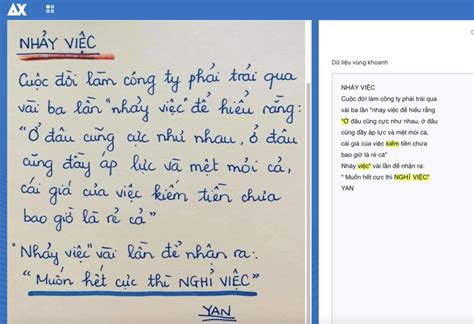 AX
NHẢY VIỆC
Cuộc đời làm công ty phải trải qua
vài ba lần "nhảy việc" để hiểu rằng:
"Ở đâu cũng cực như nhau, ở đâu
cũng đầy áp lực và mệt mỏi cả,
cái giá của việc kiếm tiền chưa
bao giờ là rẻ cả"
"Nhảy việc" vài lần để nhận ra:
"Muốn hết cực thì NGHỈ VIỆC"
YAN
Dữ liệu vùng khoanh
NHẢY VIỆC
Cuộc đời làm công ty phải trải qua
vài ba lần "nhảy việc để hiểu rằng
"Ở đâu cũng cực như nhau, ở đâu
cũng đầy áp lực và mệt mỏi cả,
cái giá của việc kiếm tiền chưa
bao giờ là rẻ cả"
Nhảy việc" vài lần để nhận ra:
" Muốn hết cực thì NGHỈ VIỆC"
YAN